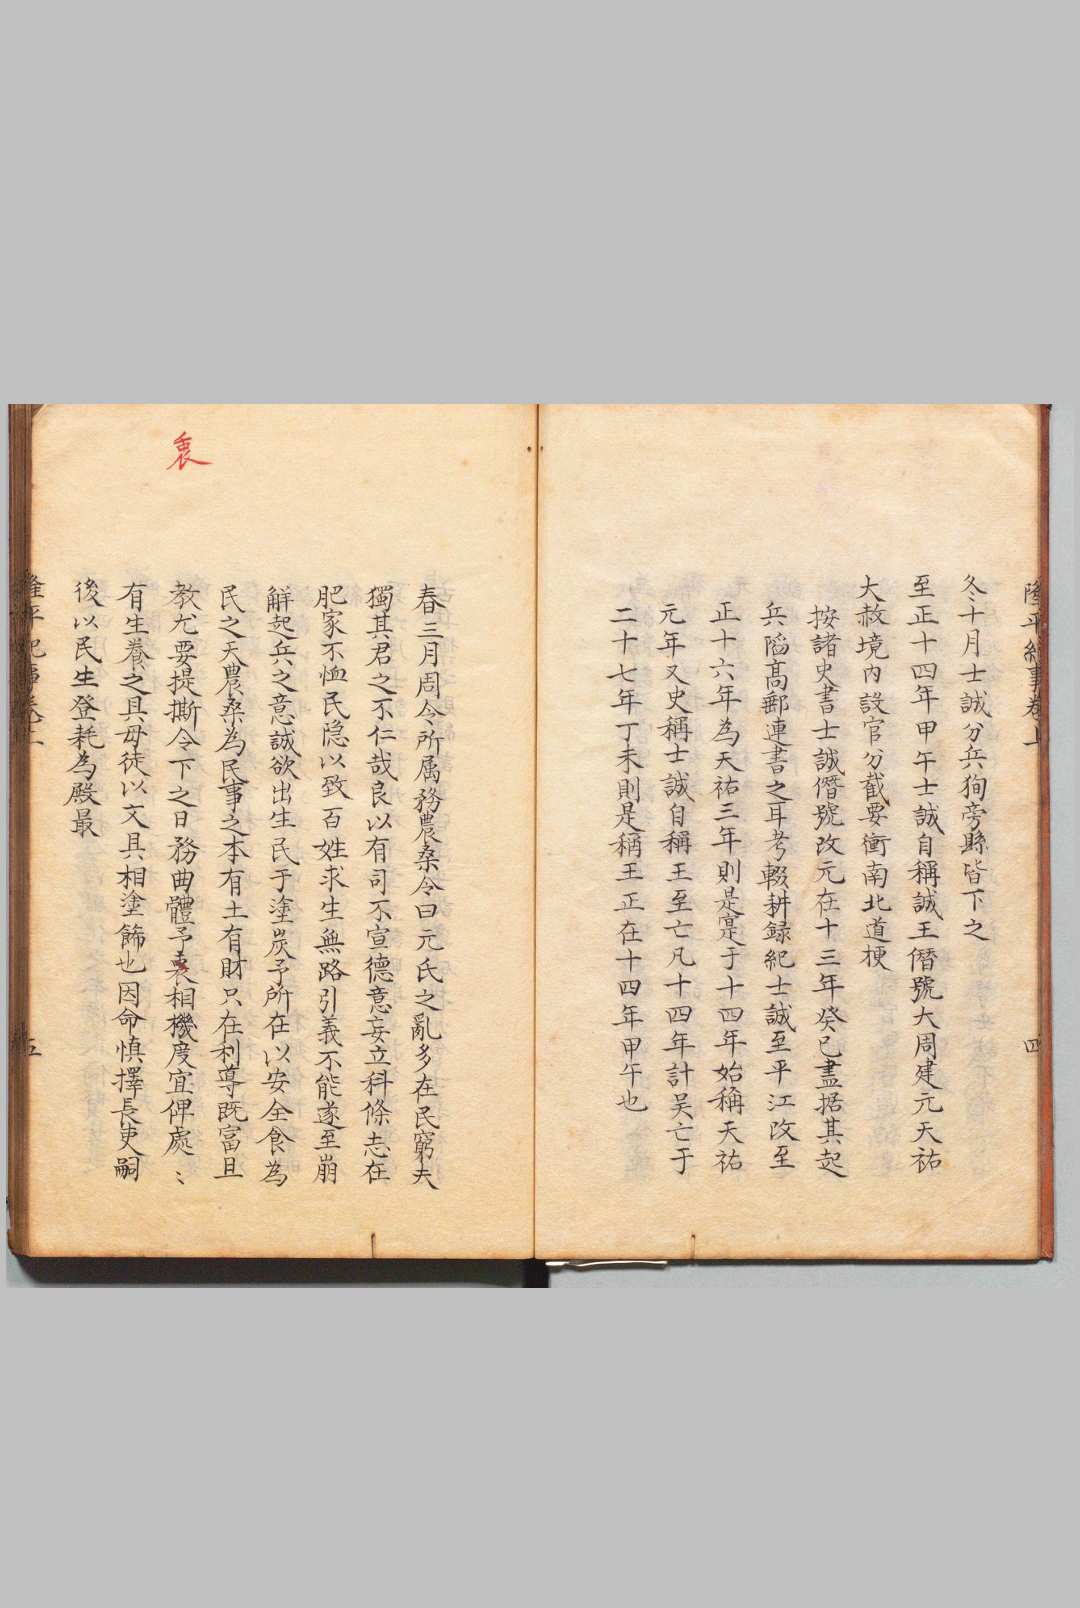 隆平紀事卷上
四
冬十月士誠分兵狥旁縣皆下之
至正十四年甲午士誠自稱誠王僭號大周建元天祐
大赦境内設官分截要衝南北道梗
按諸史書士誠僭號改元在十三年癸巳盡据其起
兵䧟髙郵連書之耳考輟耕録紀士誠至平江改至
正十六年為天祐三年則是寔于十四年始稱天祐
元年又史稱士誠自稱王至亡凡十四年計吴亡于
二十七年丁未則是稱王正在十四年甲午也
衷
春三月周令所属務農桑令曰元氏之亂多在民窮夫
獨其君之不仁哉良以有司不宣德意妄立科條志在
肥家不恤民隐以致百姓求生無路引義不能遂至崩
觧起兵之意誠欲出生民于塗炭予所在以安全食為
民之天農桑為民事之本有土有財只在利導既富且
教尤要提撕令下之日務曲體予衷相機度宜俾處〻
有生養之具毋徒以文具相塗飾也因命慎擇長吏嗣
後以民生登耗為殿最
隆平紀事卷上
五